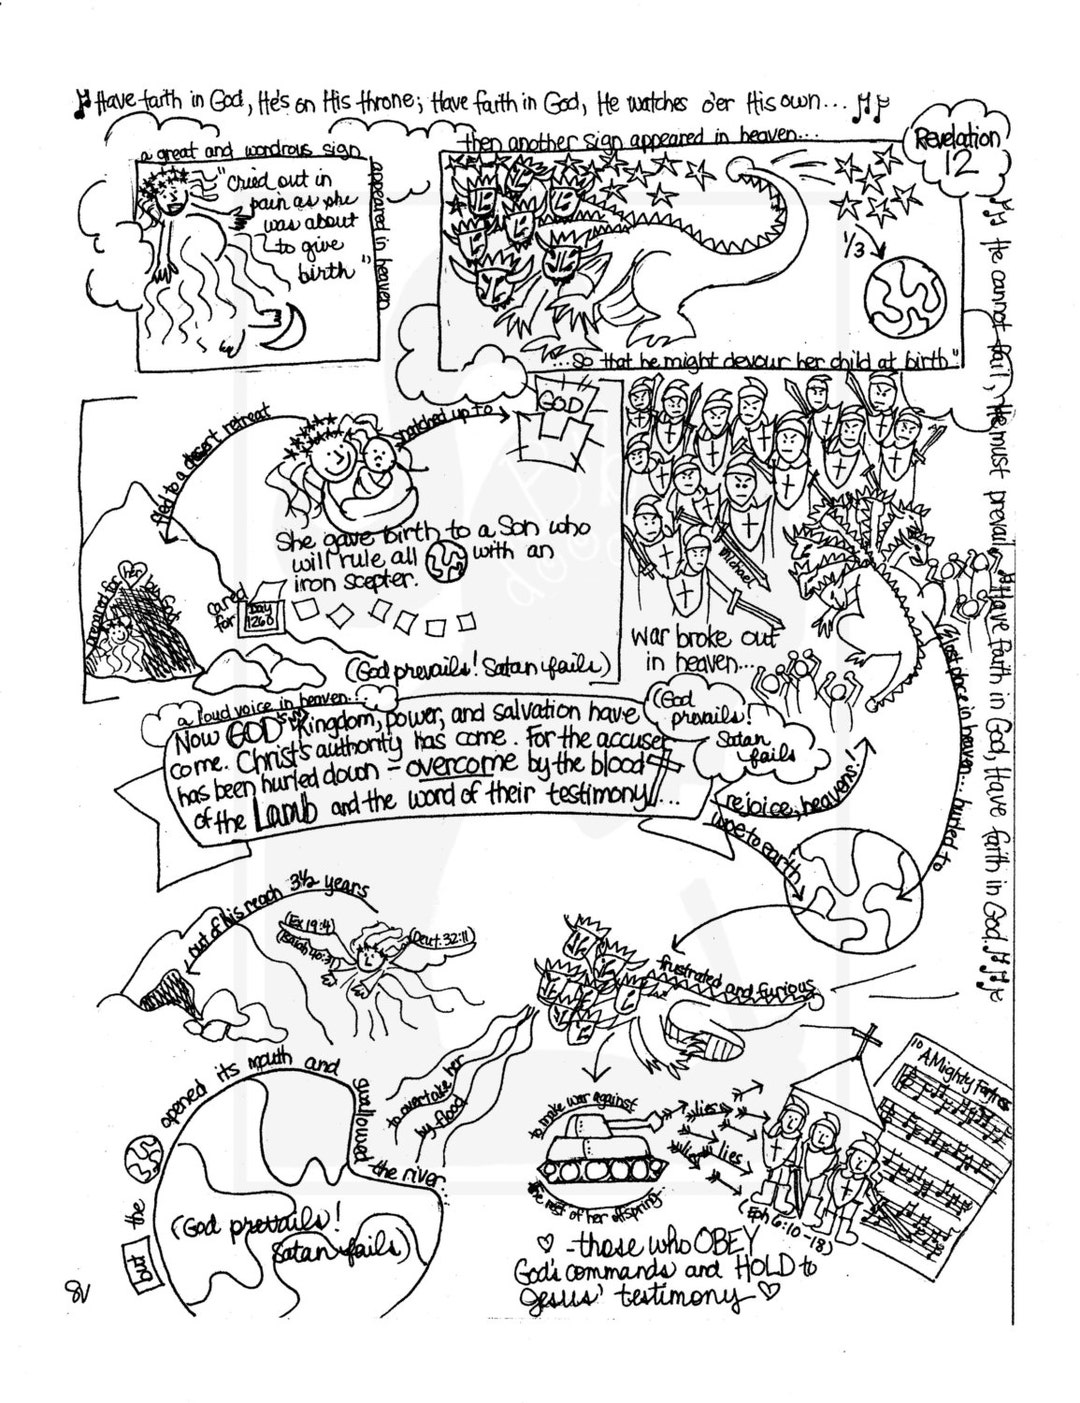 Have faith in God, He's on His throne; Have faith in God, He watches o'er His own...
a great and wondrous sign
appeared in heaven
"cried out in
pain as she
was about
to give
birth"
then another sign appeared in heaven...
Revelation
12
1/3
...so that he might devour her child at birth"
He cannot fail, He must prevail, Have faith in God, Have faith in God.
fled to a desert retreat
snatched up to
GOD
She gave birth to a Son who
will rule all
with an
iron scepter.
prepared for
her
by God
cared
for
Day
1260
(God prevails! Satan fails)
Michael
war broke out
in heaven...
(lost place in heaven... hurled to
a loud voice in heaven...
Now GOD'S Kingdom, power, and salvation have
come. Christ's authority has come. For the accuser
has been hurled down - overcome by the blood
of the Lamb and the word of their testimony...
(God
prevails!
Satan
fails
rejoice, heavens!
woe to earth
out of his reach 3½ years
(Ex 19:4)
(Isaiah 40:31)
(Deut. 32:11)
frustrated and furious
to overtake her
by flood
But
the
opened its mouth and
swallowed
the river...
(God prevails!
Satan fails)
to make war against
the rest of her offspring
lies
lies
lies
(Eph 6:10-18)
10
A Mighty Fortress
- those who OBEY
God's commands and HOLD to
Jesus' testimony